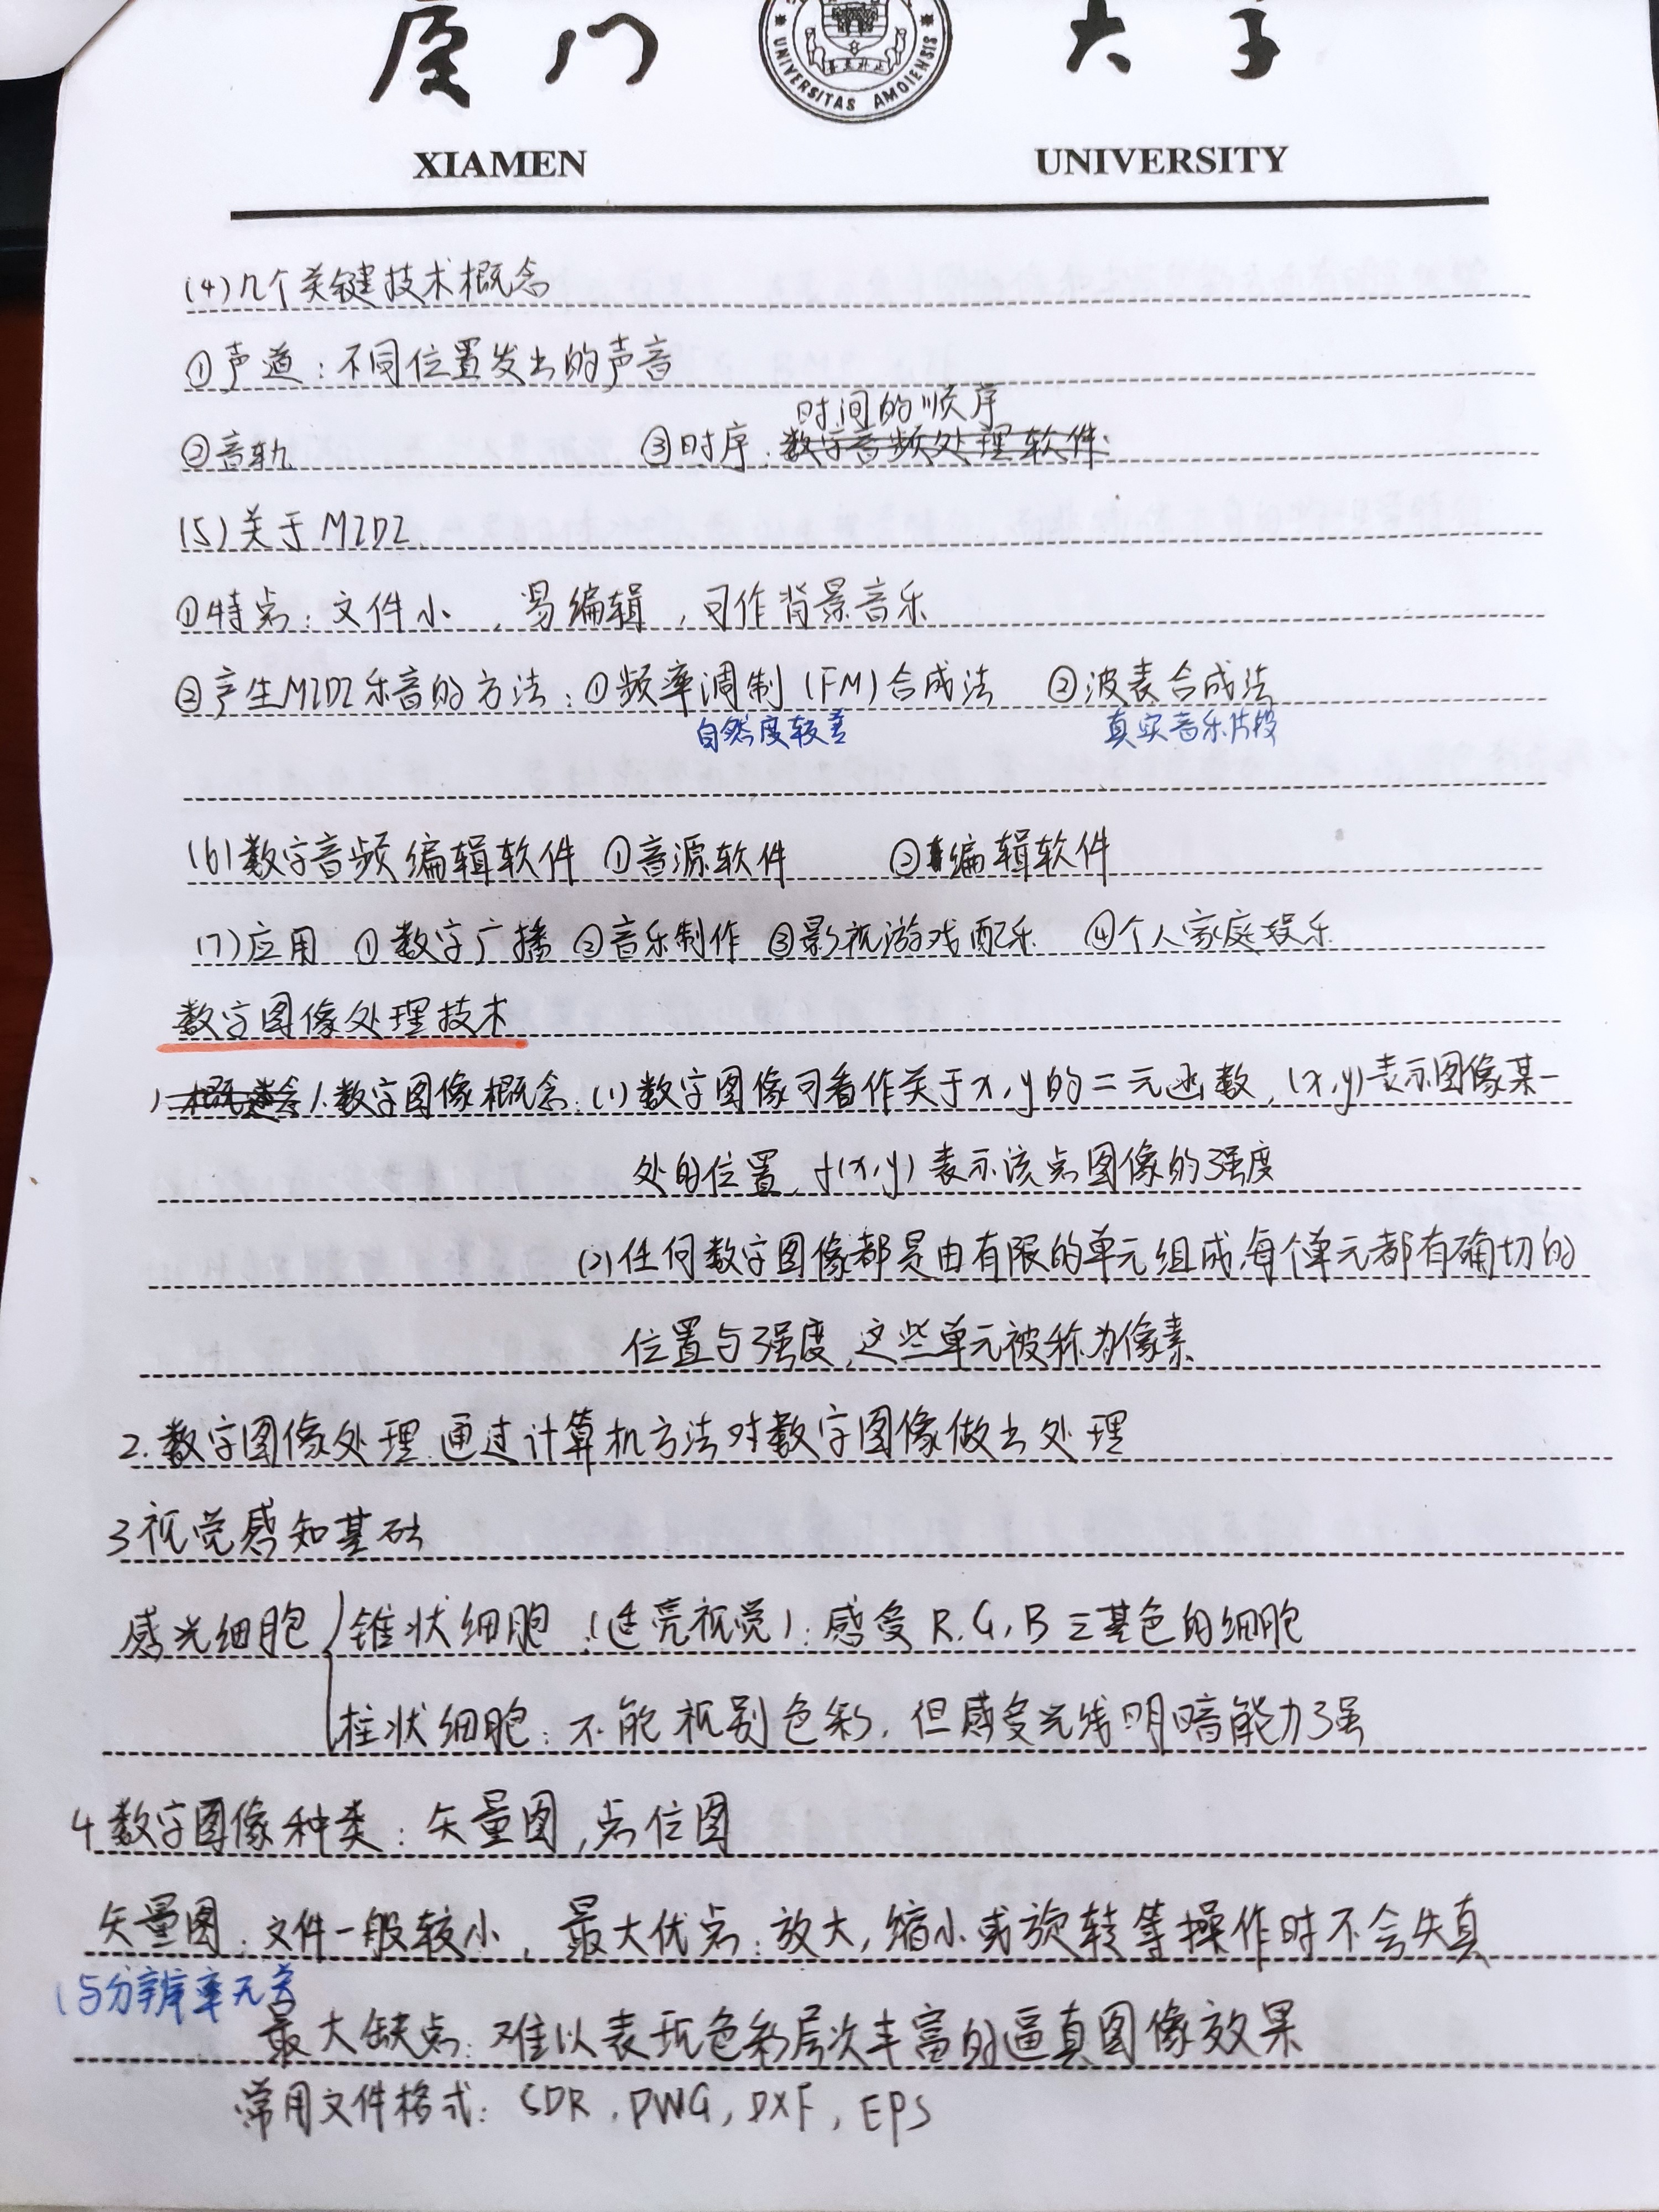 厦门大学
UNIVERSITAS AMOIENSIS
XIAMEN UNIVERSITY
(4)几个关键技术概念
①声道:不同位置发出的声音
时间的顺序
②音轨 ③时序:数字音频处理软件
(5)关于MIDI
①特点:文件小,易编辑,可作背景音乐
②产生MIDI乐音的方法:①频率调制(FM)合成法 ②波表合成法
自然度较差 真实音乐片段
(6)数字音频编辑软件 ①音源软件 ②编辑软件
(7)应用 ①数字广播 ②音乐制作 ③影视游戏配乐 ④个人家庭娱乐
数字图像处理技术
1.概念 1.数字图像概念:(1)数字图像可看作关于x,y的二元函数,(x,y)表示图像某一
处的位置,f(x,y)表示该点图像的强度
(2)任何数字图像都是由有限的单元组成,每个单元都有确切的
位置与强度,这些单元被称为像素
2.数字图像处理:通过计算机方法对数字图像做出处理
3视觉感知基础
感光细胞 锥状细胞(适亮视觉):感受R,G,B三基色的细胞
柱状细胞:不能视别色彩,但感受光线明暗能力强
4数字图像种类:矢量图,点位图
矢量图:文件一般较小,最大优点:放大,缩小或旋转等操作时不会失真
(与分辨率无关
最大缺点:难以表现色彩层次丰富的逼真图像效果
常用文件格式:CDR,DWG,DXF,EPS